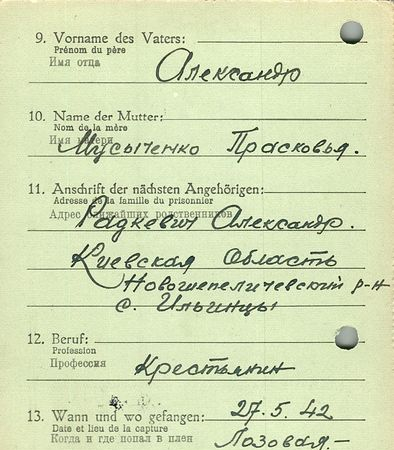 9. Vorname des Vaters:
Prénom du père
Имя отца
Александр
10. Name der Mutter:
Nom de la mère
Имя матери
Мусыченко Прасковья.
11. Anschrift der nächsten Angehörigen:
Adresse de la famille du prisonnier
Адрес ближайших родственников
Радкевич Александр.
Киевская Область
Новошепеличевский р-н
с. Ильинцы
12. Beruf:
Profession
Профессия
Крестьянин
13. Wann und wo gefangen: 27.5.42
Date et lieu de la capture
Когда и где попал в плен
Лозовая.-